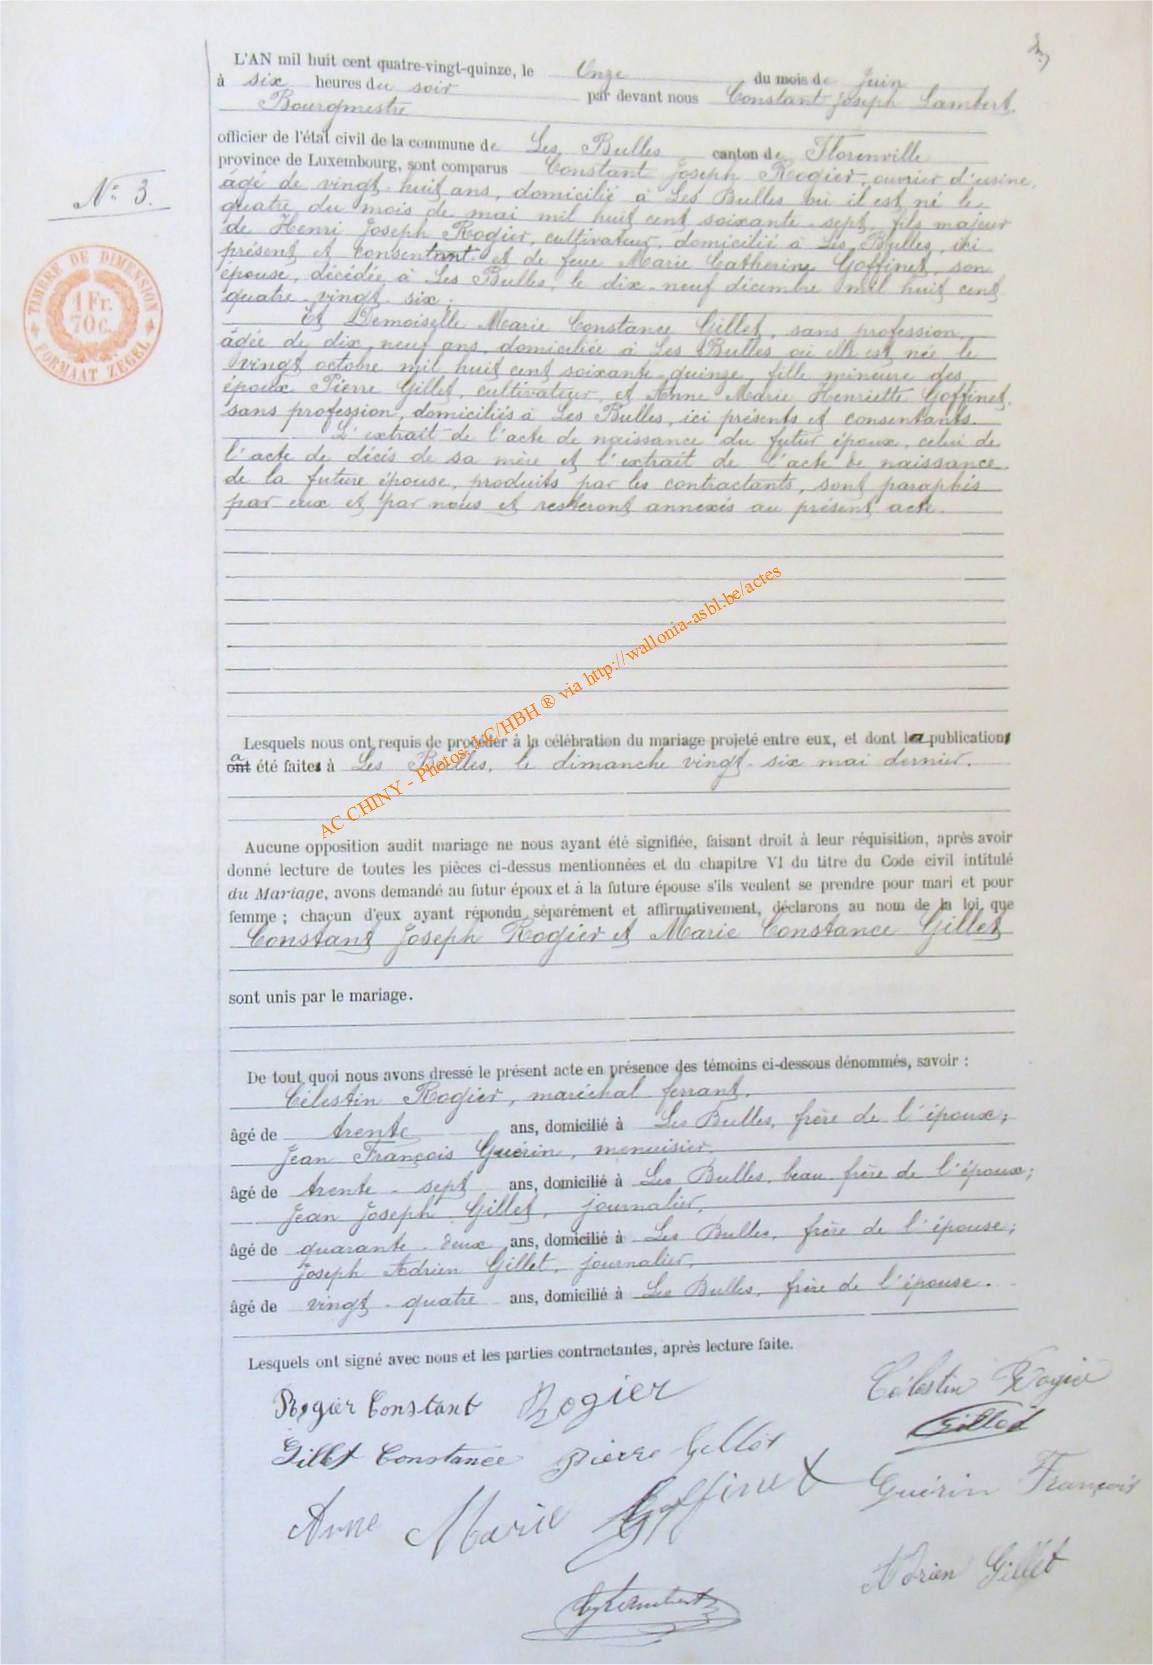 L'AN mil huit cent quatre-vingt-quinze, le Onze du mois de Juin
à six heures du soir par devant nous Constant Joseph Lambert,
Bourgmestre
officier de l'état civil de la commune de Les Bulles canton de Florenville
province de Luxembourg, sont comparus Constant Joseph Rogier, ouvrier d'usine,
âgé de vingt-huit ans, domicilié à Les Bulles où il est né le
quatre du mois de mai mil huit cent soixante-sept, fils majeur
de Henri Joseph Rogier, cultivateur, domicilié à Les Bulles, ici
présent et consentant et de feue Marie Catherine Goffinet, son
épouse, décédée à Les Bulles, le dix-neuf décembre mil huit cent
quatre-vingt-six;
N° 3.
TIMBRE DE DIMENSION
1 Fr.
70 c.
FORMAAT ZEGEL
Et Demoiselle Marie Constance Gillet, sans profession,
âgée de dix-neuf ans, domiciliée à Les Bulles où elle est née le
vingt octobre mil huit cent soixante-quinze, fille mineure des
époux Pierre Gillet, cultivateur, et Anne Marie Henriette Goffinet,
sans profession, domiciliés à Les Bulles, ici présents et consentants.
L'extrait de l'acte de naissance du futur époux, celui de
l'acte de décès de sa mère et l'extrait de l'acte de naissance
de la future épouse, produits par les contractants, sont paraphés
par eux et par nous et resteront annexés au présent acte.
AC CHINY - Photos: LC/HBH ® via http://wallonia-asbl.be/actes
Lesquels nous ont requis de procéder à la célébration du mariage projeté entre eux, et dont la publication
a été faite à Les Bulles, le dimanche vingt-six mai dernier.
Aucune opposition audit mariage ne nous ayant été signifiée, faisant droit à leur réquisition, après avoir
donné lecture de toutes les pièces ci-dessus mentionnées et du chapitre VI du titre du Code civil intitulé
du Mariage, avons demandé au futur époux et à la future épouse s'ils veulent se prendre pour mari et pour
femme ; chacun d'eux ayant répondu séparément et affirmativement, déclarons au nom de la loi, que
Constant Joseph Rogier et Marie Constance Gillet
sont unis par le mariage.
De tout quoi nous avons dressé le présent acte en présence des témoins ci-dessous dénommés, savoir :
Célestin Rogier, maréchal ferrant,
âgé de trente ans, domicilié à Les Bulles, frère de l'époux;
Jean François Guérin, menuisier,
âgé de trente-sept ans, domicilié à Les Bulles, beau-frère de l'époux;
Jean Joseph Gillet, journalier,
âgé de quarante-deux ans, domicilié à Les Bulles, frère de l'épouse;
Joseph Adrien Gillet, journalier,
âgé de vingt-quatre ans, domicilié à Les Bulles, frère de l'épouse.
Lesquels ont signé avec nous et les parties contractantes, après lecture faite.
Rogier Constant Rogier Célestin Rogier
Gillet
Gillet Constance Pierre Gillet
Guérin François
Anne Marie Goffinet
Adrien Gillet
Lambert